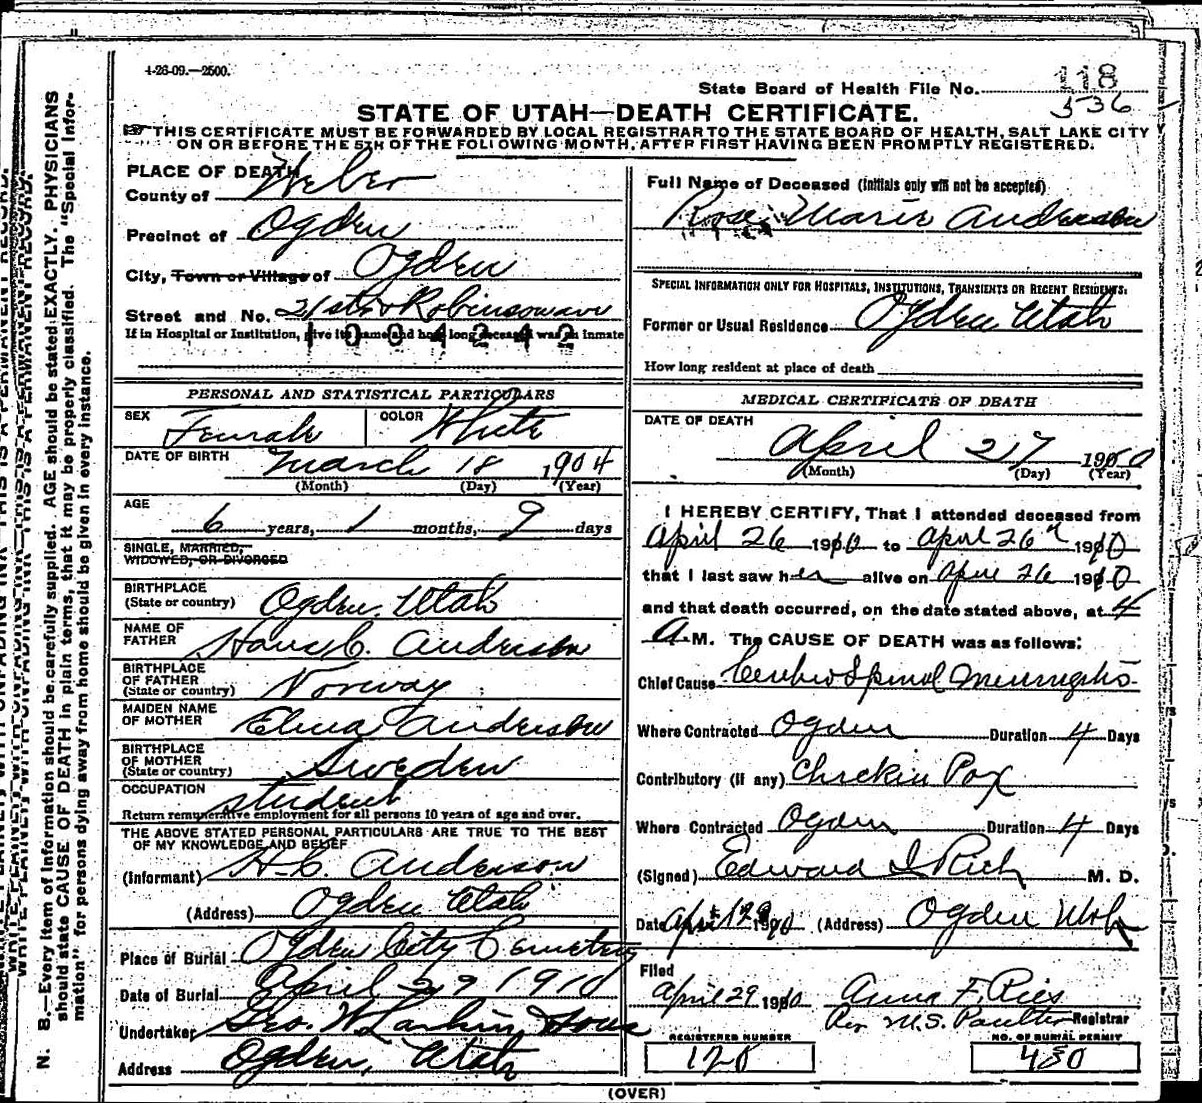 4-26-09.—2500.
State Board of Health File No. 118
536
STATE OF UTAH—DEATH CERTIFICATE.
THIS CERTIFICATE MUST BE FORWARDED BY LOCAL REGISTRAR TO THE STATE BOARD OF HEALTH, SALT LAKE CITY
ON OR BEFORE THE 5TH OF THE FOLLOWING MONTH, AFTER FIRST HAVING BEEN PROMPTLY REGISTERED.
PLACE OF DEATH
County of Weber
Precinct of Ogden
City, Town or Village of Ogden
Street and No. 21st & Robinson ave
If in Hospital or Institution, give its name and how long deceased was an inmate
1004242
PERSONAL AND STATISTICAL PARTICULARS
SEX Female COLOR White
DATE OF BIRTH March 18 1904
(Month) (Day) (Year)
AGE 6 years, 1 months, 9 days
SINGLE, MARRIED,
WIDOWED, OR DIVORCED
BIRTHPLACE
(State or country) Ogden, Utah
NAME OF
FATHER Hans C. Anderson
BIRTHPLACE
OF FATHER
(State or country) Norway
MAIDEN NAME
OF MOTHER Elina Anderson
BIRTHPLACE
OF MOTHER
(State or country) Sweden
OCCUPATION student
Return remunerative employment for all persons 10 years of age and over.
THE ABOVE STATED PERSONAL PARTICULARS ARE TRUE TO THE BEST
OF MY KNOWLEDGE AND BELIEF
(Informant) H. C. Anderson
(Address) Ogden Utah
Place of Burial Ogden City Cemetery
Date of Burial April 29 1910
Undertaker Geo. W. Larkin, Sons
Address Ogden, Utah
Full Name of Deceased (Initials only will not be accepted)
Rose Marie Anderson
SPECIAL INFORMATION ONLY FOR HOSPITALS, INSTITUTIONS, TRANSIENTS OR RECENT RESIDENTS.
Former or Usual Residence Ogden Utah
How long resident at place of death
MEDICAL CERTIFICATE OF DEATH
DATE OF DEATH
April 27 1910
(Month) (Day) (Year)
I HEREBY CERTIFY, That I attended deceased from
April 26 1910 to April 26th 1910
that I last saw her alive on April 26 1910
and that death occurred, on the date stated above, at 4
A. M. The CAUSE OF DEATH was as follows:
Chief Cause Cerebro Spinal Meningitis
Where Contracted Ogden Duration 4 Days
Contributory (if any) Chicken Pox
Where Contracted Ogden Duration 4 Days
(Signed) Edward I Rich M. D.
Date Apr 1910 (Address) Ogden Utah
Filed
April 29 1910 Anna F. Ries
Per M.S. Poulter Registrar
REGISTERED NUMBER
120
NO. OF BURIAL PERMIT
430
(OVER)
N. B.—Every item of information should be carefully supplied. AGE should be stated EXACTLY. PHYSICIANS
should state CAUSE OF DEATH in plain terms, that it may be properly classified. The "Special Infor-
mation" for persons dying away from home should be given in every instance.